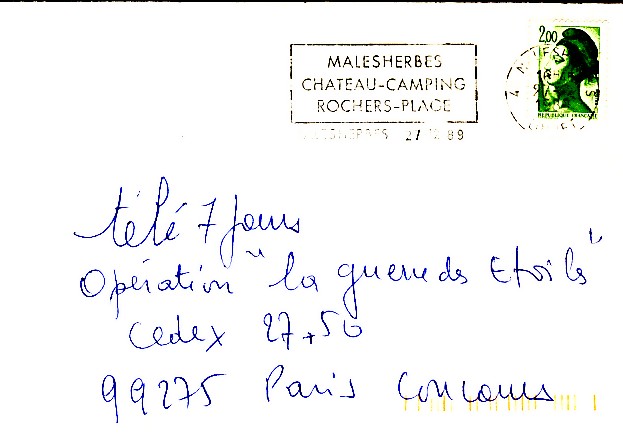 2,00
MALESHERBES
CHATEAU-CAMPING
ROCHERS-PLAGE
REPUBLIQUE FRANCAISE
MALESHERBES 27 12 89
télé 7 jours
Opération "la guerre des Etoiles"
Cedex 27+50
99275 Paris Concours